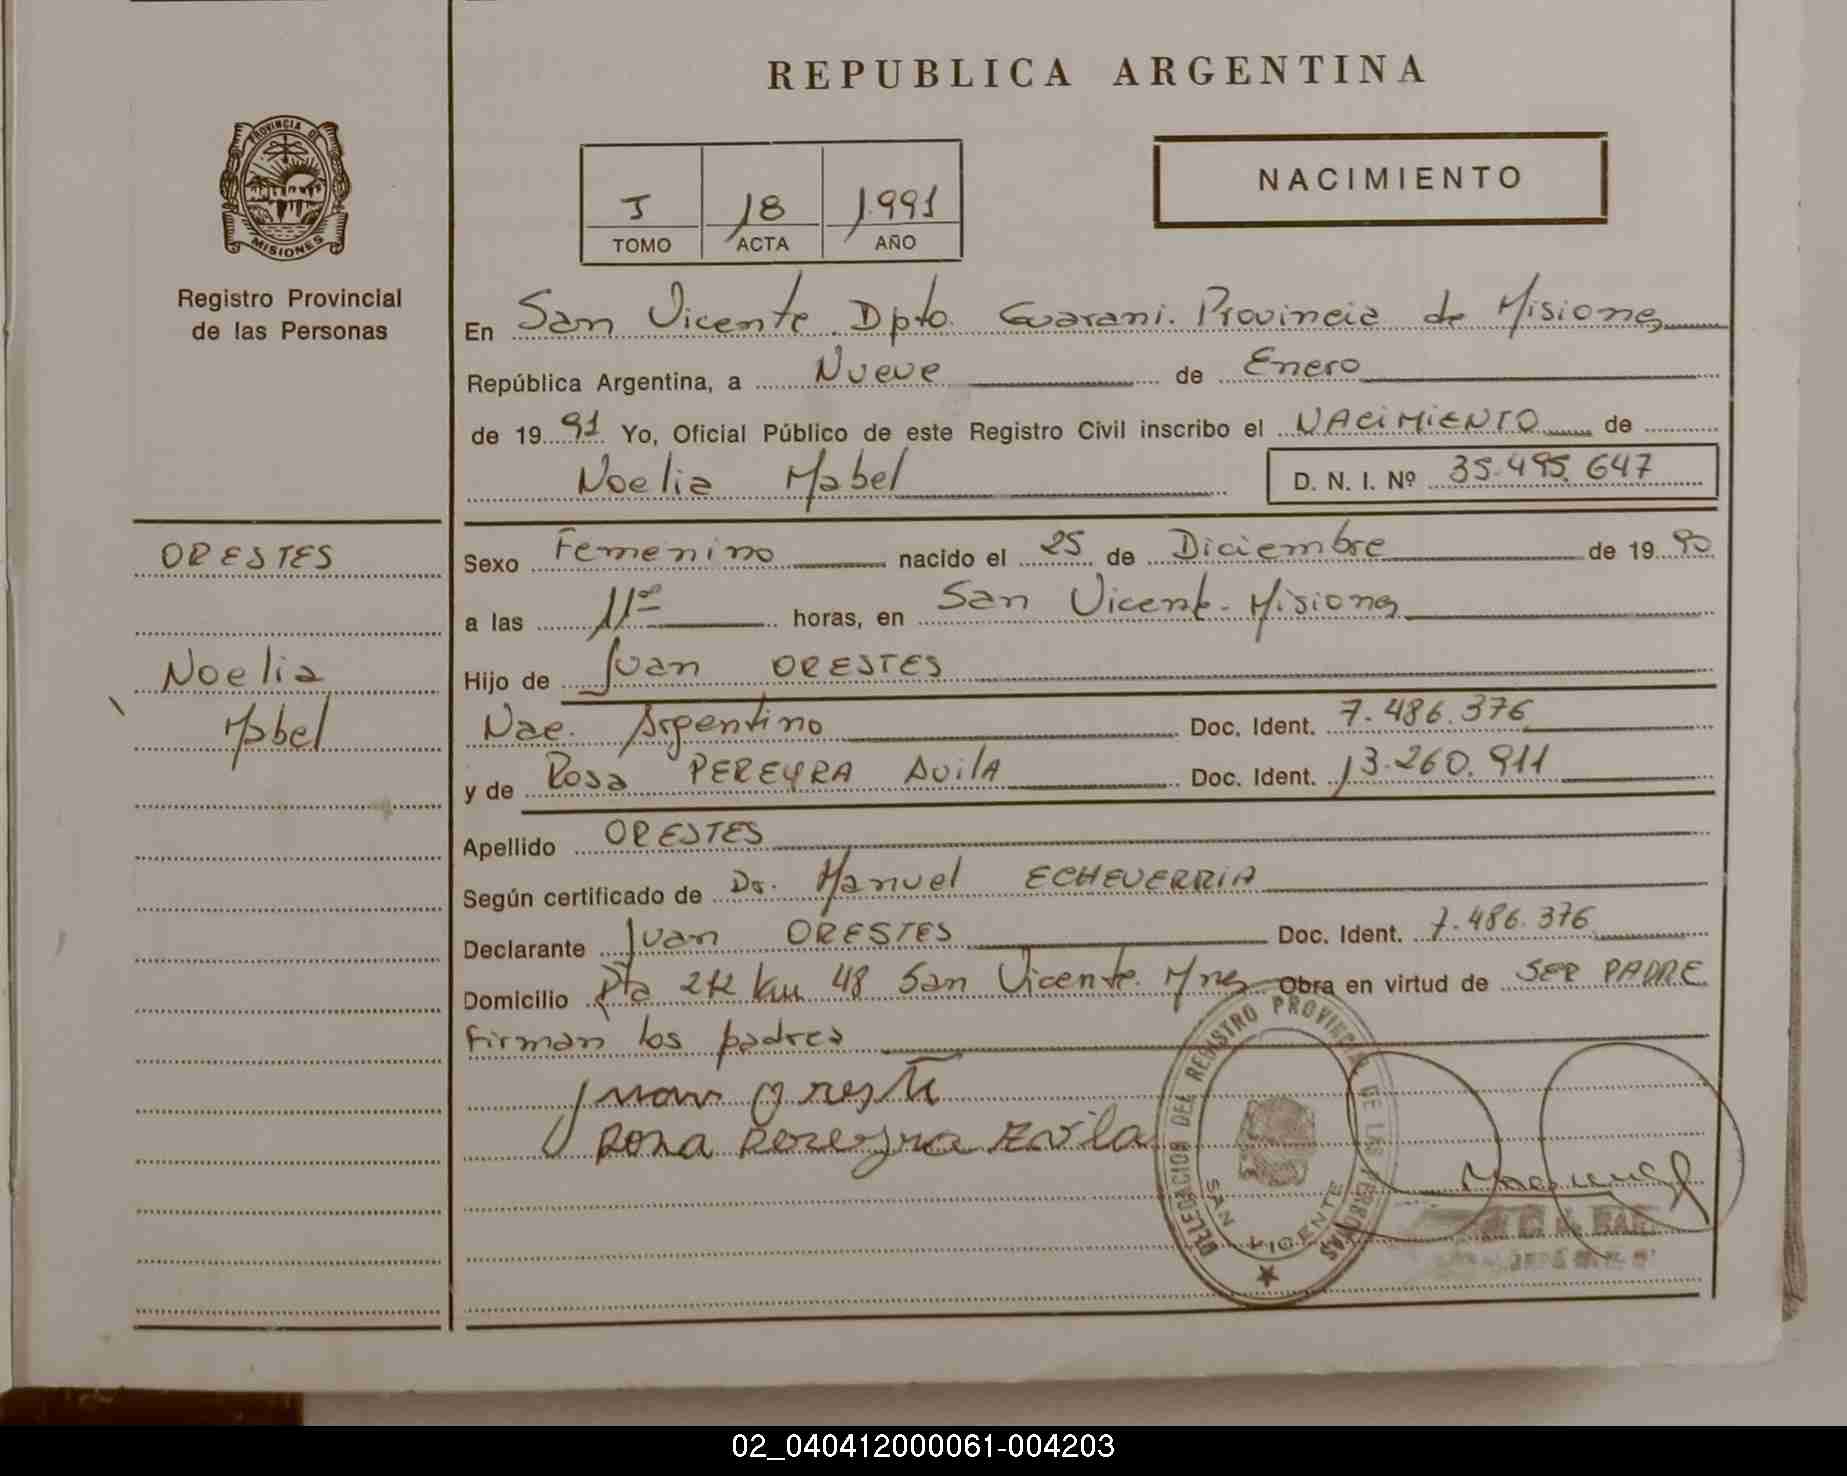 REPUBLICA ARGENTINA
PROVINCIA DE
MISIONES
Registro Provincial
de las Personas
NACIMIENTO
J 18 1.991
TOMO ACTA AÑO
En San Vicente Dpto. Guarani. Provincia de Misiones
República Argentina, a Nueve de Enero
de 1991 Yo, Oficial Público de este Registro Civil inscribo el NACIMIENTO de
Noelia Mabel D. N. I. Nº 35.495.647
ORESTES
Noelia
Mabel
Sexo Femenino nacido el 25 de Diciembre de 1990
a las 11 horas, en San Vicente. Misiones
Hijo de Juan ORESTES
Nac. Argentino Doc. Ident. 7.486.376
y de Rosa PEREYRA AVILA Doc. Ident. 13.260.911
Apellido ORESTES
Según certificado de Dr. Manuel ECHEVERRIA
Declarante Juan ORESTES Doc. Ident. 7.486.376
Domicilio Rta 212 km 48 San Vicente. Mnes Obra en virtud de SER PADRE
Firman los padres
Juan Oreste
Rosa Pereyra Avila
DELEGACION DEL REGISTRO PROVINCIAL DE LAS PERSONAS
SAN VICENTE
02_040412000061-004203